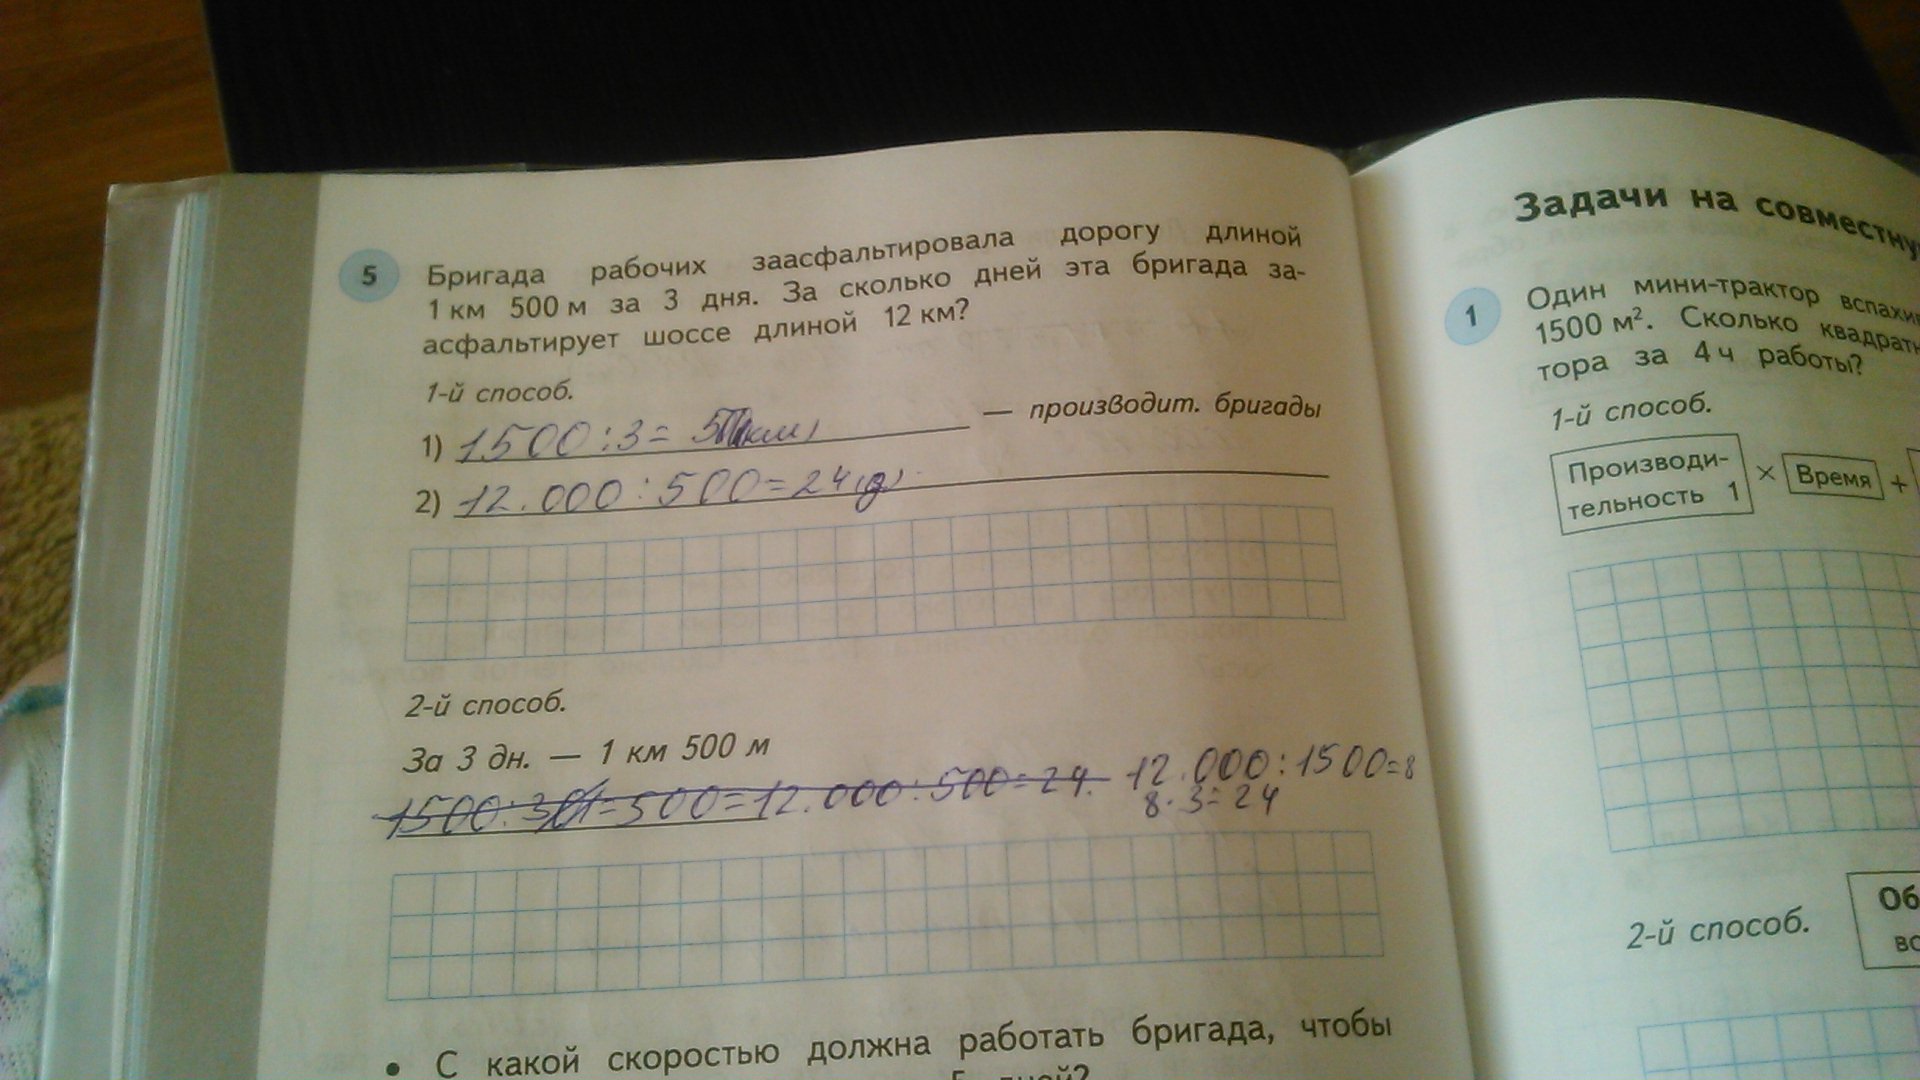 5 Бригада рабочих заасфальтировала дорогу длиной
1 км 500 м за 3 дня. За сколько дней эта бригада за-
асфальтирует шоссе длиной 12 км?
1-й способ.
1) 1500 : 3 = — производит. бригады
2) 12.000 : 500 = 24 (д)
2-й способ.
За 3 дн. — 1 км 500 м
= 500 = 12.000 : 500 = 24. 12.000 : 1500 = 8
8 · 3 = 24
• С какой скоростью должна работать бригада, чтобы
5 дней?
Задачи на совместну
1 Один мини-трактор вспахи
1500 м². Сколько квадратн
тора за 4 ч работы?
1-й способ.
Производи-
тельность 1 × Время +
2-й способ.
Об
вс